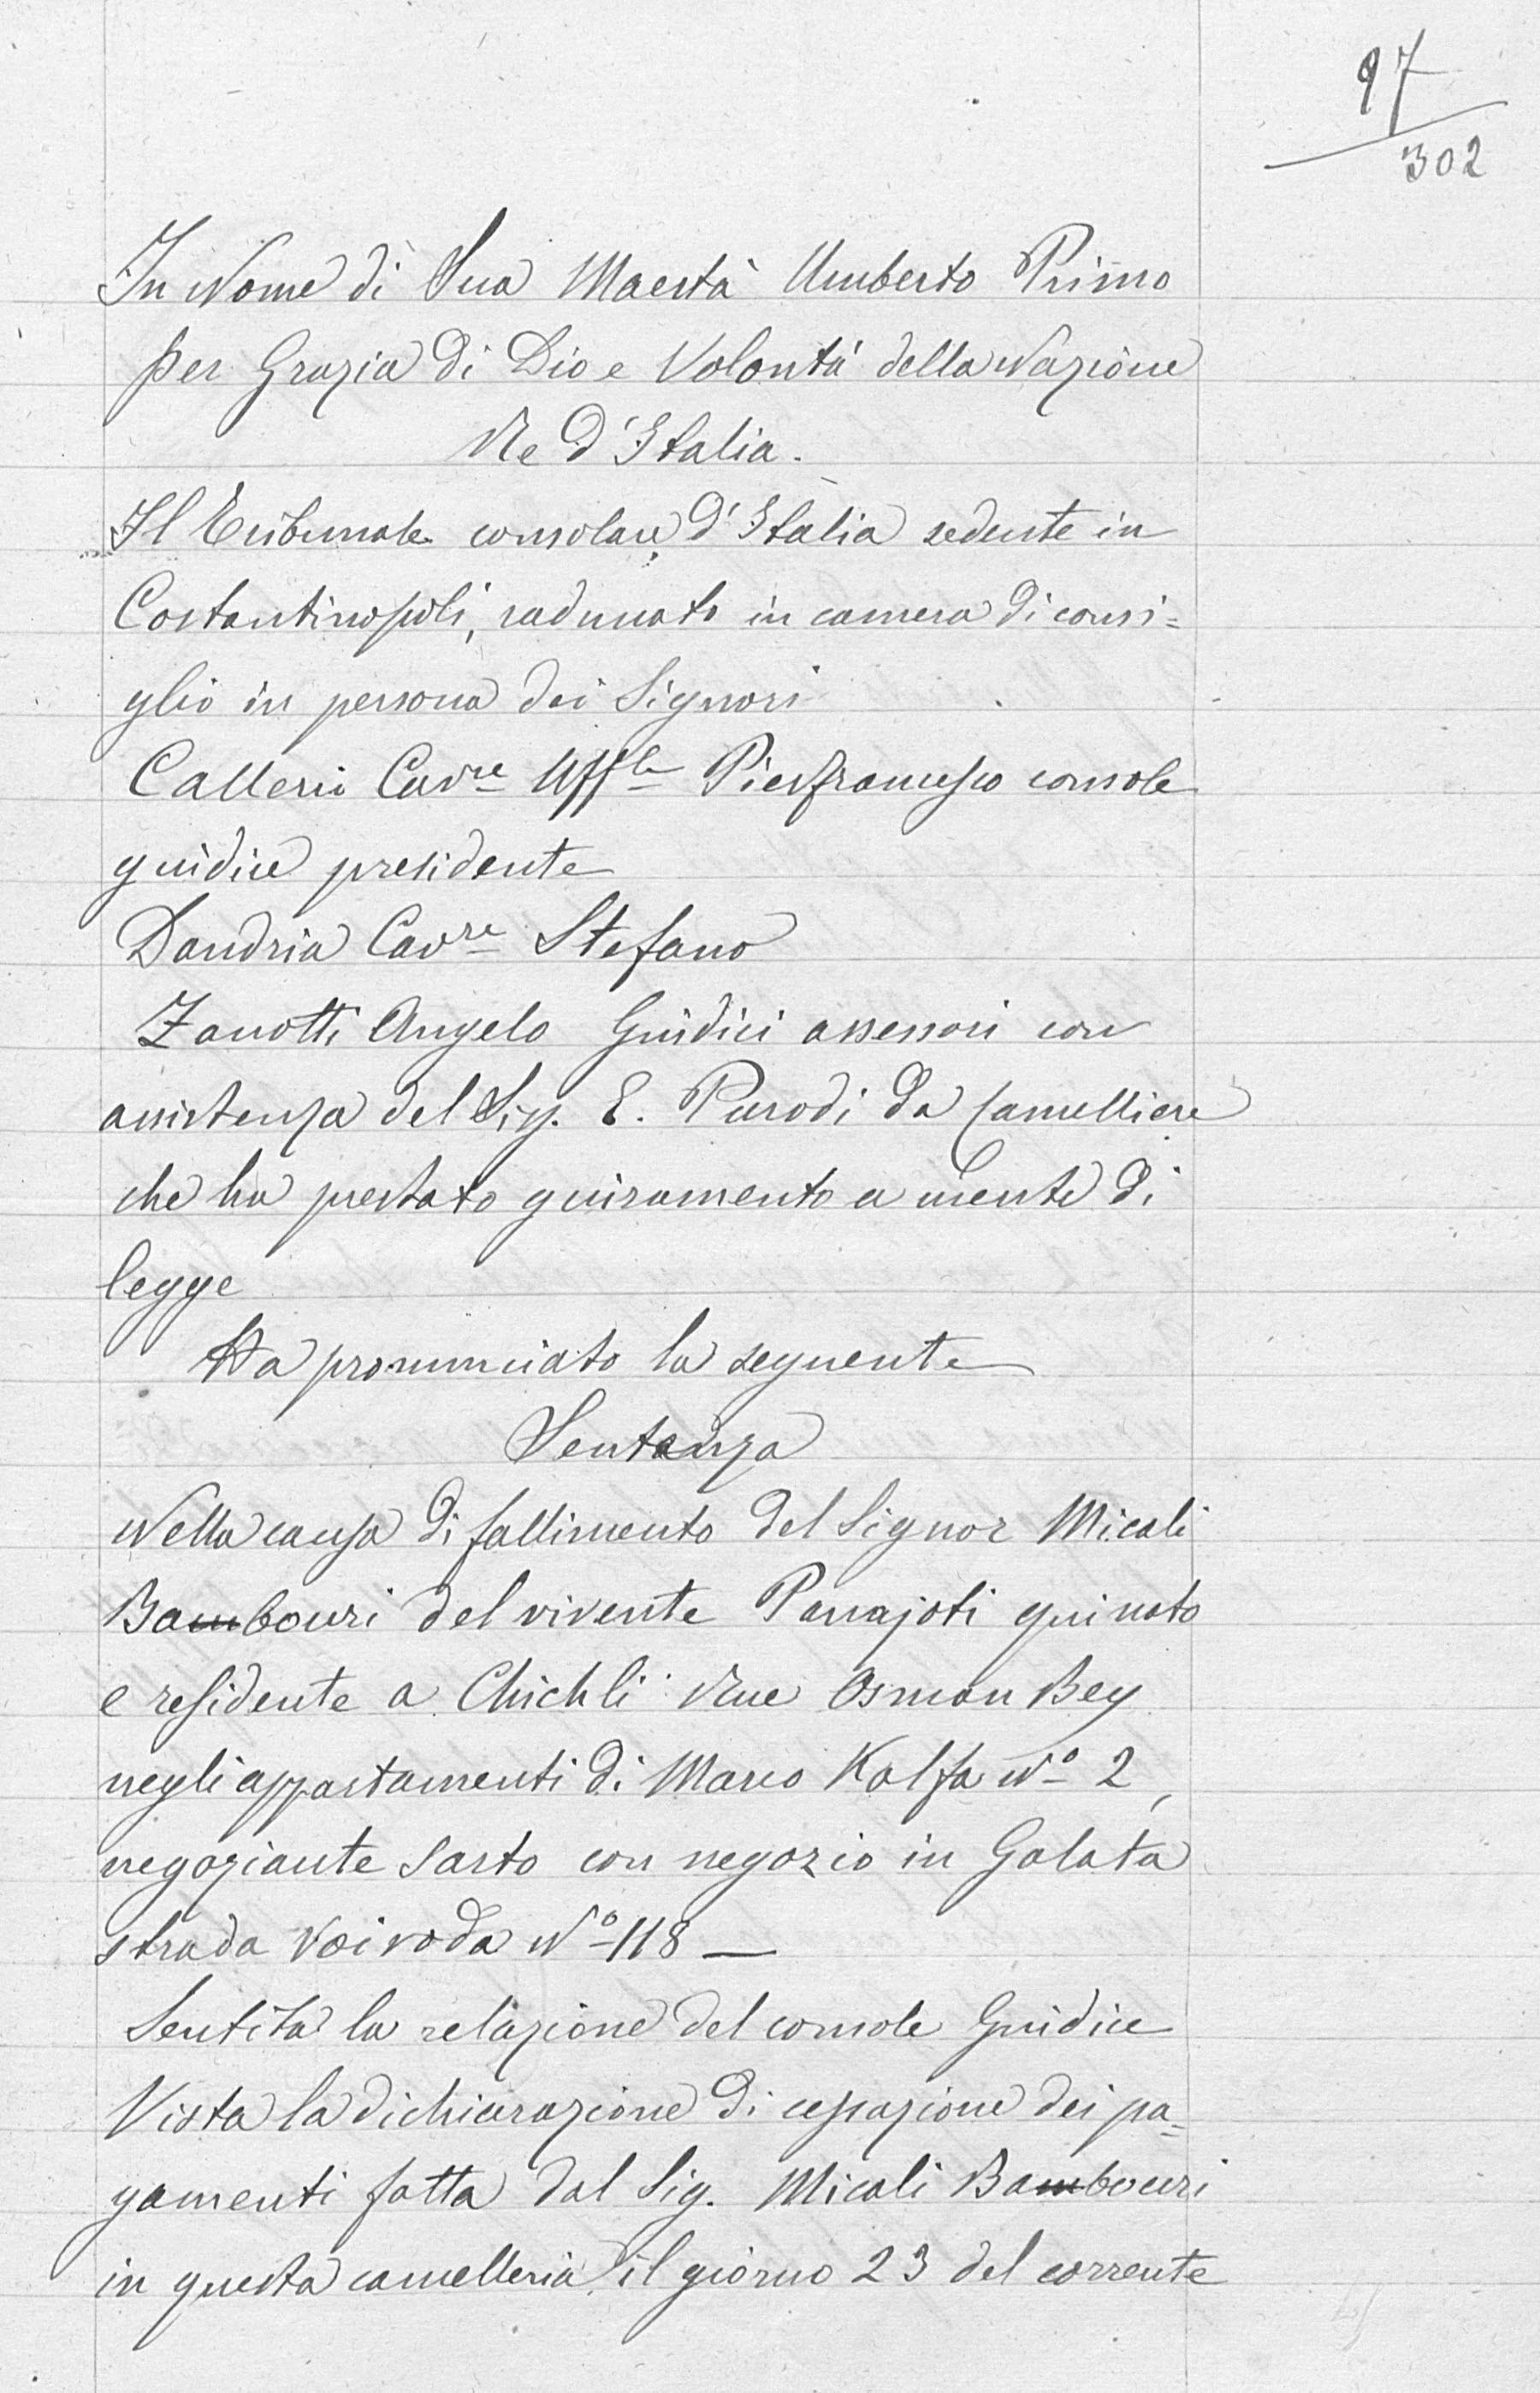 97
302
In Nome di Sua Maestà Umberto Primo
per Grazia di Dio e Volontà della Nazione
Re d'Italia.
Il Tribunale consolare d'Italia sedente in
Costantinopoli, radunato in camera di consi=
glio in persona dei Signori
Calleri Cavre Uffle Pierfrancesco console
giudice presidente
Dandria Cavre Stefano
Zanotti Angelo Giudici assessori con
assistenza del Sig. E. Parodi da Cancelliere
che ha prestato giuramento a mente di
legge
Ha pronunciato la seguente
Sentenza
Nella causa di fallimento del Signor Micali
Bambouri del vivente Panajoti qui nato
e residente a Chichli rue Osman Bey
negli appartamenti di Marco Kalfa No 2,
negoziante sarto con negozio in Galata
strada Voivoda No 118 —
Sentita la relazione del console Giudice
Vista la dichiarazione di cessazione dei pa=
gamenti fatta dal Sig. Micali Bambouri
in questa cancelleria il giorno 23 del corrente